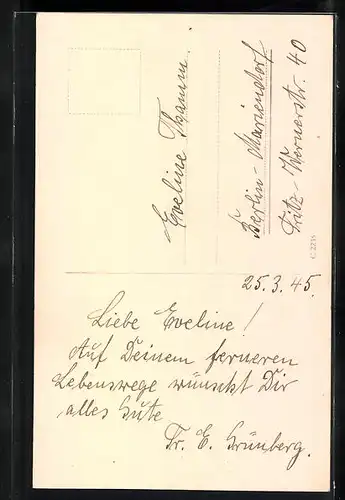 Eveline Thamm.
Berlin-Mariendorf
Fritz-Wernerstr. 40
C 2235
25.3.45.
Liebe Eveline!
Auf Deinem ferneren
Lebenswege wünscht Dir
alles Gute
Fr. E. Grünberg.